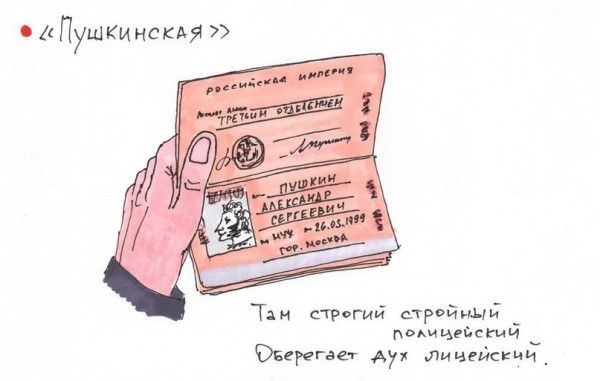 «Пушкинская»
РОССИЙСКАЯ ИМПЕРИЯ
Паспорт выдан
ТРЕТЬИМ ОТДЕЛЕНИЕМ
ПУШКИН
АЛЕКСАНДР
СЕРГЕЕВИЧ
МУЖ 26.05.1799
ГОР. МОСКВА
Там строгий стройный
полицейский
Оберегает дух лицейский.